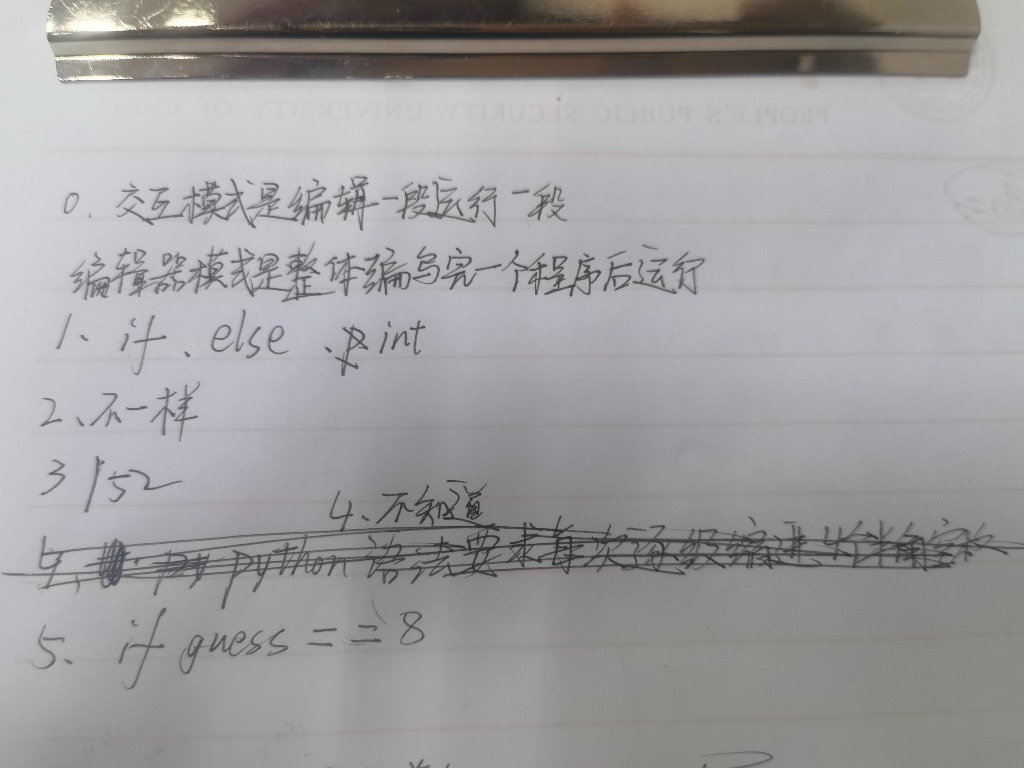 PEOPLE'S PUBLIC SECURITY UNIVERSITY OF CHINA
0. 交互模式是编辑一段运行一段
编辑器模式是整体编写完一个程序后运行
1、if、else、print
2、不一样
3 152
4、不知道
4、python语法要求每次逐级编进
5、if guess == 8